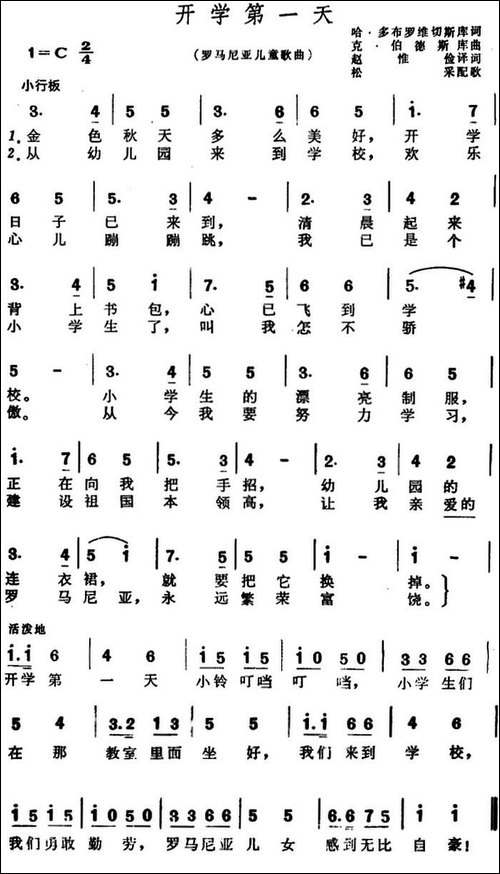 开学第一天
哈·多布罗维切斯库词
1=C 2/4 (罗马尼亚儿童歌曲) 克·伯德斯库曲
赵惟俭译词
松采配歌
小行板
3. 4 | 5 5 | 3. 6 | 6 5 | i. 7 |
1.金色秋天多么美好，开学
2.从幼儿园来到学校，欢乐
6 5 | 5. 3 | 4 - | 2. 3 | 4 2 |
日子已来到，清晨起来
心儿蹦蹦跳，我已是个
3. 4 | 5 i | 7. 5 | 6 6 | 5. #4 |
背上书包，心已飞到学
小学生了，叫我怎不骄
5 - | 3. 4 | 5 5 | 3. 6 | 6 5 |
校。小学生的漂亮制服，
傲。从今我要努力学习，
i. 7 | 6 5 | 5. 3 | 4 - | 2. 3 | 4 2 |
正在向我把手招，幼儿园的
建设祖国本领高，让我亲爱的
3. 4 | 5 i | 7. 5 | 5 5 | i - | i - |
连衣裙，就要把它换掉。
罗马尼亚，永远繁荣富饶。
活泼地
i.i 6 | 4 6 | i5 i5 | i0 50 | 33 66 |
开学第一天小铃叮当叮当，小学生们
5 4 | 3.2 13 | 5 5 | i.i 66 | 4 6 |
在那教室里面坐好，我们来到学校，
i5 i5 | i0 50 | 33 66 | 5 5 | 6.6 75 | i i ‖
我们勇敢勤劳，罗马尼亚儿女感到无比自豪！